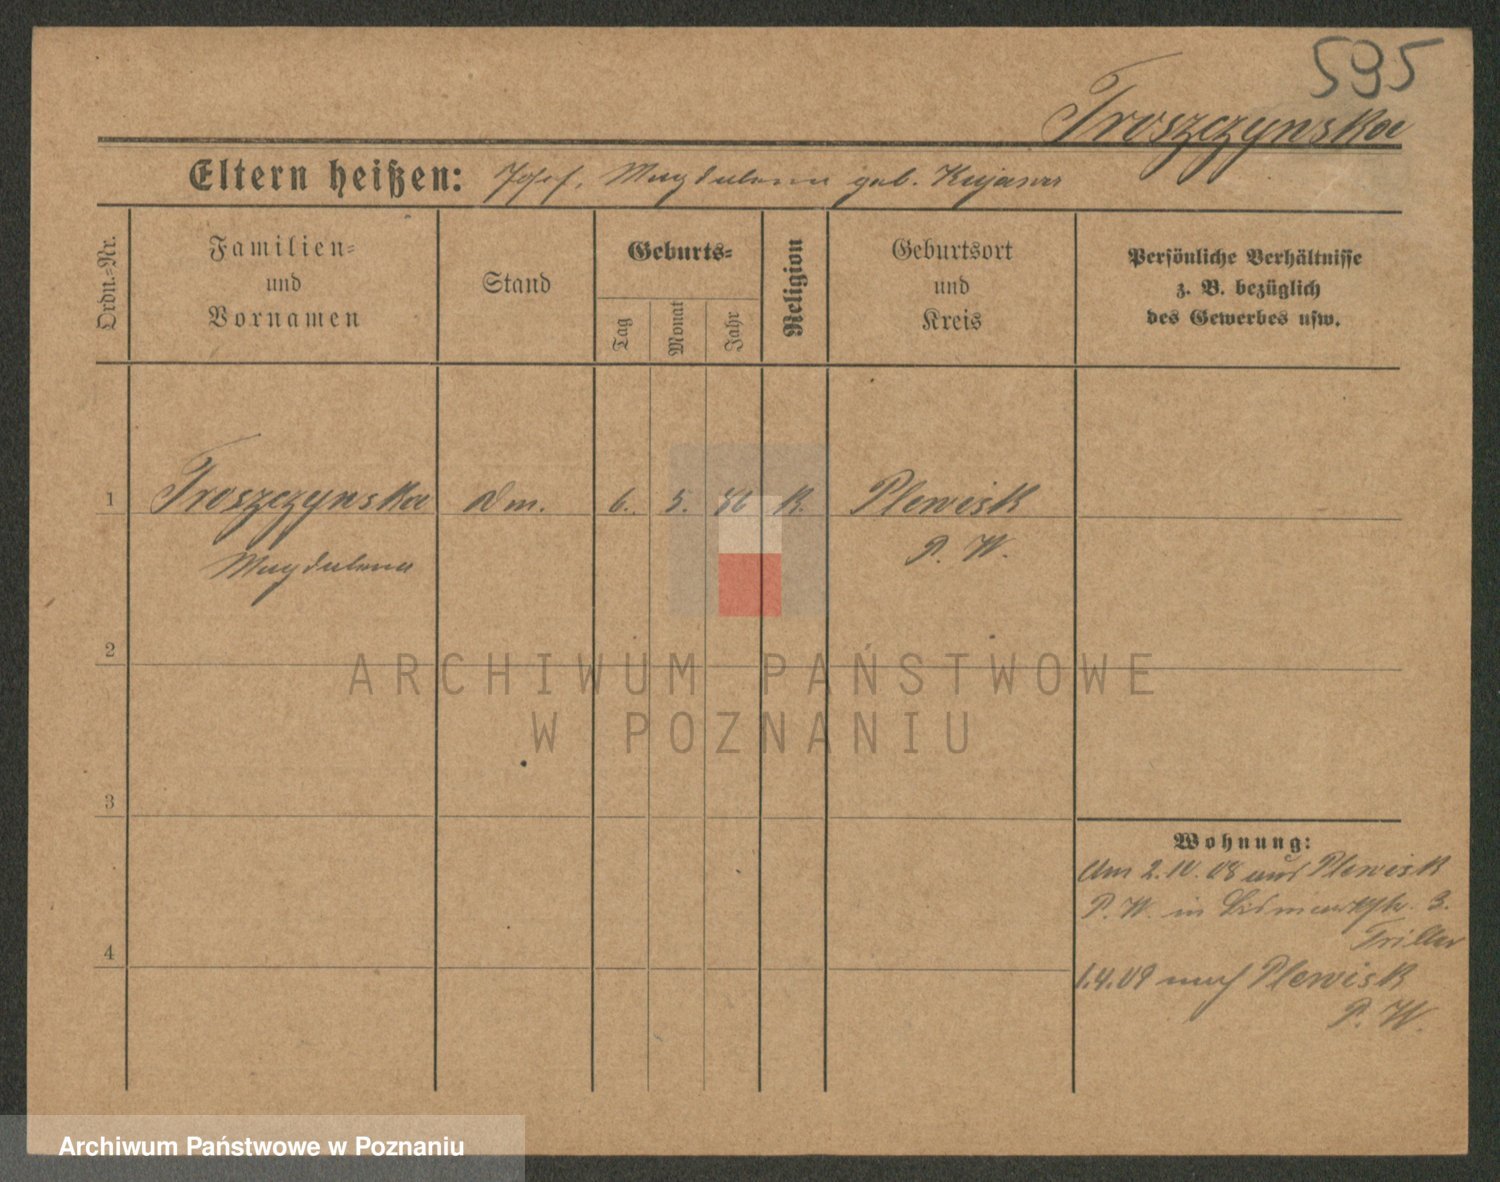 595
Troszczynska
Eltern heißen: Josef, Magdalena geb. Kujawa
Ordn.=Nr.
Familien=
und
Vornamen
Stand
Geburts=
Tag
Monat
Jahr
Religion
Geburtsort
und
Kreis
Persönliche Verhältnisse
z. B. bezüglich
des Gewerbes usw.
1 Troszczynska 6. 5. 86 K. Plewisk
Magdalena P. W.
2
3
4
Wohnung:
Am 2.10.08 aus Plewisk
P. W. in Bismarckstr. 3.
Triller
1.4.09 nach Plewisk
P. W.
ARCHIWUM PAŃSTWOWE
W POZNANIU
Archiwum Państwowe w Poznaniu